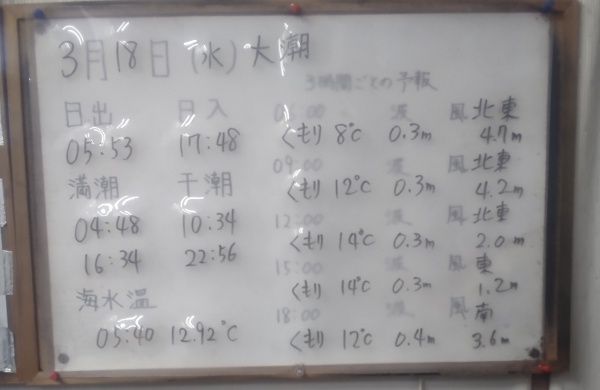 3月18日(水)大潮
3時間ごとの予報
日出 日入
05:53 17:48
満潮 干潮
04:48 10:34
16:34 22:56
海水温
05:40 12.92℃
06:00 波 風 北東
くもり 8℃ 0.3m 4.7m
09:00 波 風 北東
くもり 12℃ 0.3m 4.2m
12:00 波 風 北東
くもり 14℃ 0.3m 2.0m
15:00 波 風 東
くもり 14℃ 0.3m 1.2m
18:00 波 風 南
くもり 12℃ 0.4m 3.6m